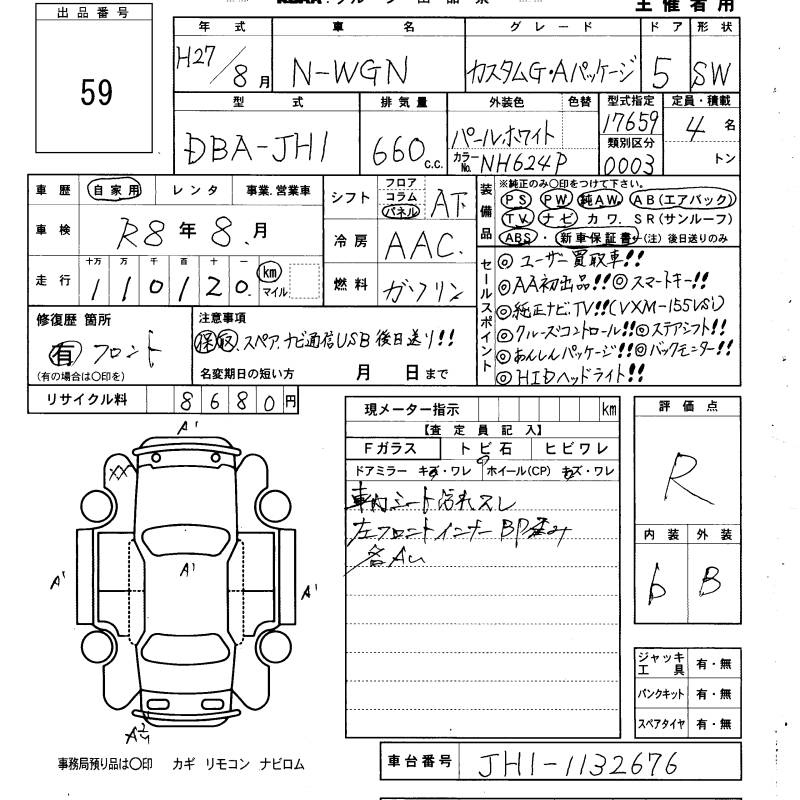 主催者用
出品番号
59
年式 車名 グレード ドア 形状
H27/8月 N-WGN カスタムG・Aパッケージ 5 SW
型式 排気量 外装色 色替 型式指定 定員・積載
DBA-JH1 660c.c. パールホワイト 17659 4名
カラーNo. NH624P 類別区分 0003 トン
車歴 自家用 レンタ 事業.営業車
車検 R8年8.月
走行 十万 万 千 百 十 一
110120 km マイル
シフト フロア コラム パネル AT
冷房 AAC.
燃料 ガソリン
装備品 ※純正のみ〇印をつけて下さい。
PS PW 純AW AB(エアバック)
TV ナビ カワ. SR(サンルーフ)
ABS・新車保証書←(注)後日送りのみ
セールスポイント
◎ユーザー買取車!!
◎AA初出品!!◎スマートキー!!
◎純正ナビ.TV!!(VXM-155VSi)
◎クルーズコントロール!!◎ステアシフト!!
◎あんしんパッケージ!!◎バックモニター!!
◎HIDヘッドライト!!
修復歴 箇所
有 フロント
(有の場合は〇印を)
注意事項
保.取.スペア.ナビ通信USB後日送り!!
名変期日の短い方 月 日まで
リサイクル料 8680円
現メーター指示 km
【査定員記入】
Fガラス トビ石 ヒビワレ
ドアミラー キズ・ワレ ホイール(CP) キズ・ワレ
車内シート汚れスレ
左フロントインナーBP歪み
各AU
評価点
R
内装 外装
b B
A1
XX
A1
A1
A1
ジャッキ工具 有・無
パンクキット 有・無
スペアタイヤ 有・無
事務局預り品は〇印 カギ リモコン ナビロム
車台番号 JH1-1132676